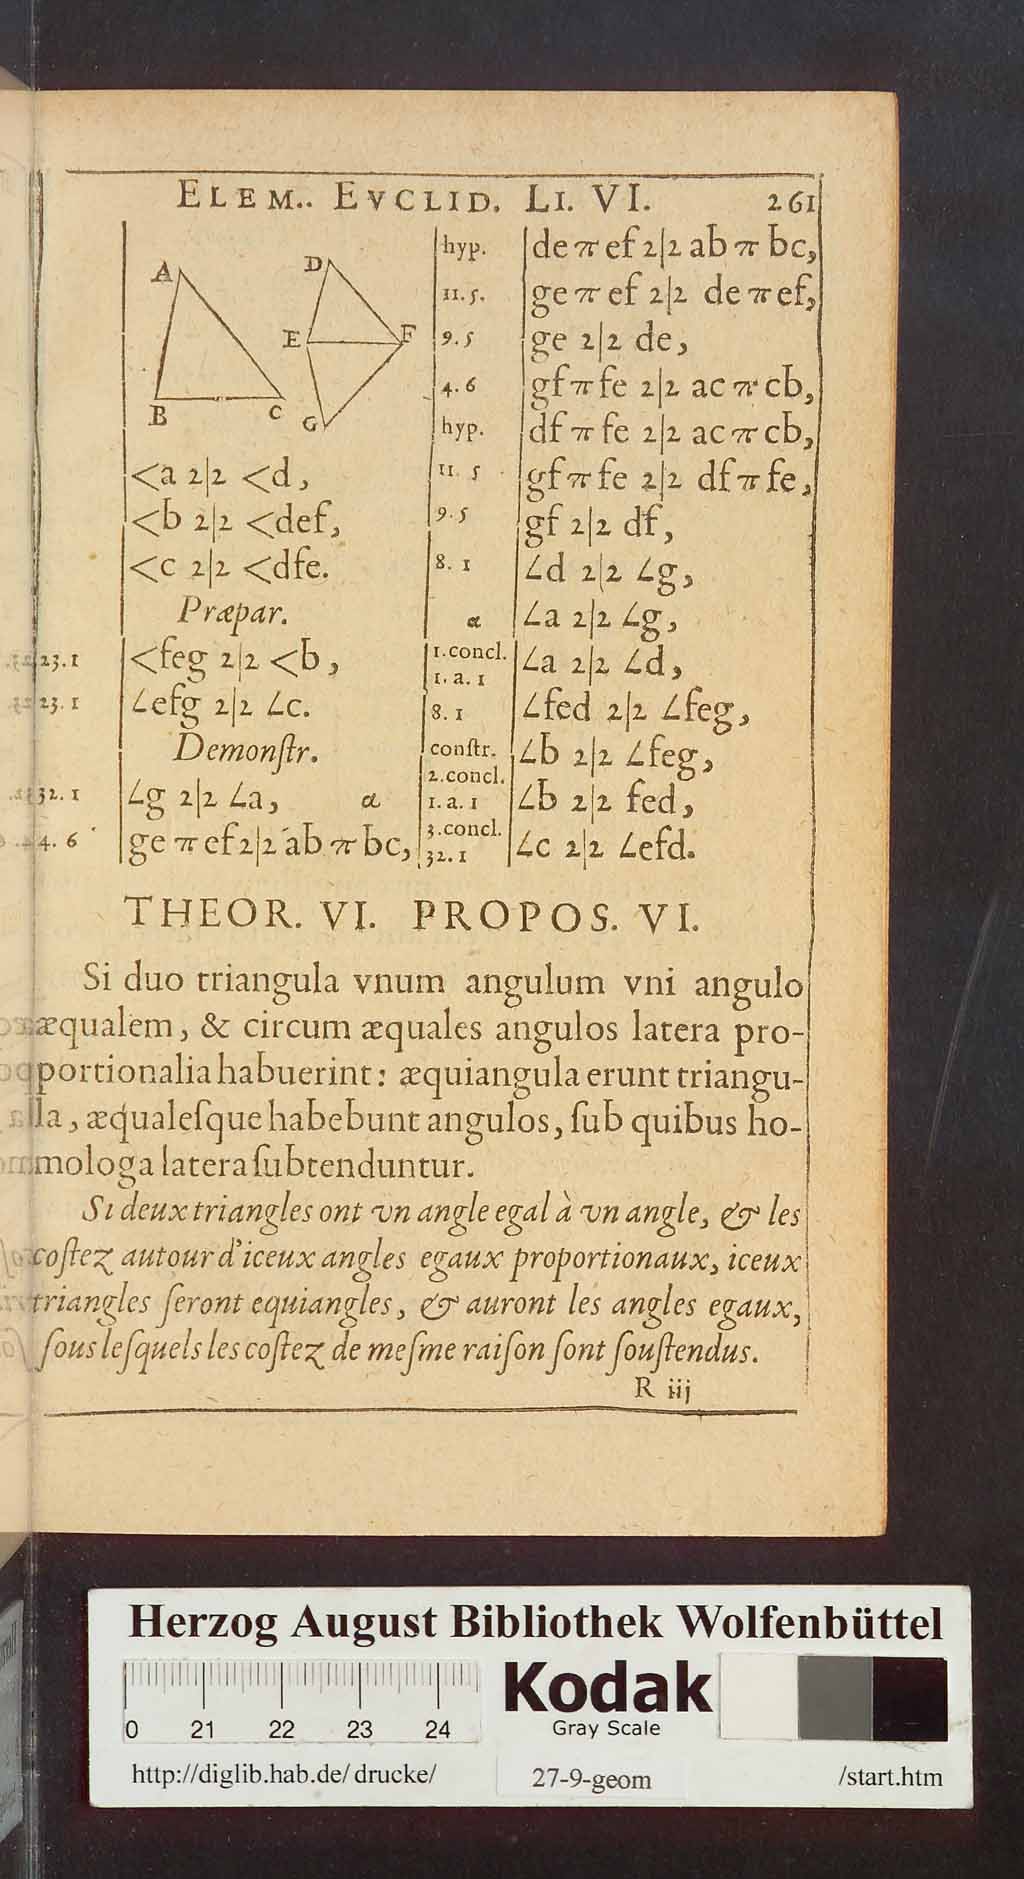 ELEM.. EVCLID. LI. VI. 261
A
B
C
D
E
F
G
<a 2|2 <d,
<b 2|2 <def,
<c 2|2 <dfe.
Præpar.
23.1 <feg 2|2 <b,
23.1 ∠efg 2|2 ∠c.
Demonſtr.
32.1 ∠g 2|2 ∠a, α
4.6 ge π ef 2|2 ab π bc,
hyp. de π ef 2|2 ab π bc,
11.5. ge π ef 2|2 de π ef,
9.5 ge 2|2 de,
4.6 gf π fe 2|2 ac π cb,
hyp. df π fe 2|2 ac π cb,
11.5 gf π fe 2|2 df π fe,
9.5 gf 2|2 df,
8.1 ∠d 2|2 ∠g,
α ∠a 2|2 ∠g,
1.concl.
1.a.1 ∠a 2|2 ∠d,
8.1 ∠fed 2|2 ∠feg,
conſtr. ∠b 2|2 ∠feg,
2.concl.
1.a.1 ∠b 2|2 fed,
3.concl.
32.1 ∠c 2|2 ∠efd.
THEOR. VI. PROPOS. VI.
Si duo triangula vnum angulum vni angulo
æqualem, & circum æquales angulos latera pro-
portionalia habuerint: æquiangula erunt triangu-
la, æqualeſque habebunt angulos, ſub quibus ho-
mologa latera ſubtenduntur.
Si deux triangles ont vn angle egal à vn angle, & les
coſtez autour d'iceux angles egaux proportionaux, iceux
triangles ſeront equiangles, & auront les angles egaux,
ſous leſquels les coſtez de meſme raiſon ſont ſouſtendus.
R iij
Herzog August Bibliothek Wolfenbüttel
0 21 22 23 24
Kodak
Gray Scale
http://diglib.hab.de/ drucke/ 27-9-geom /start.htm